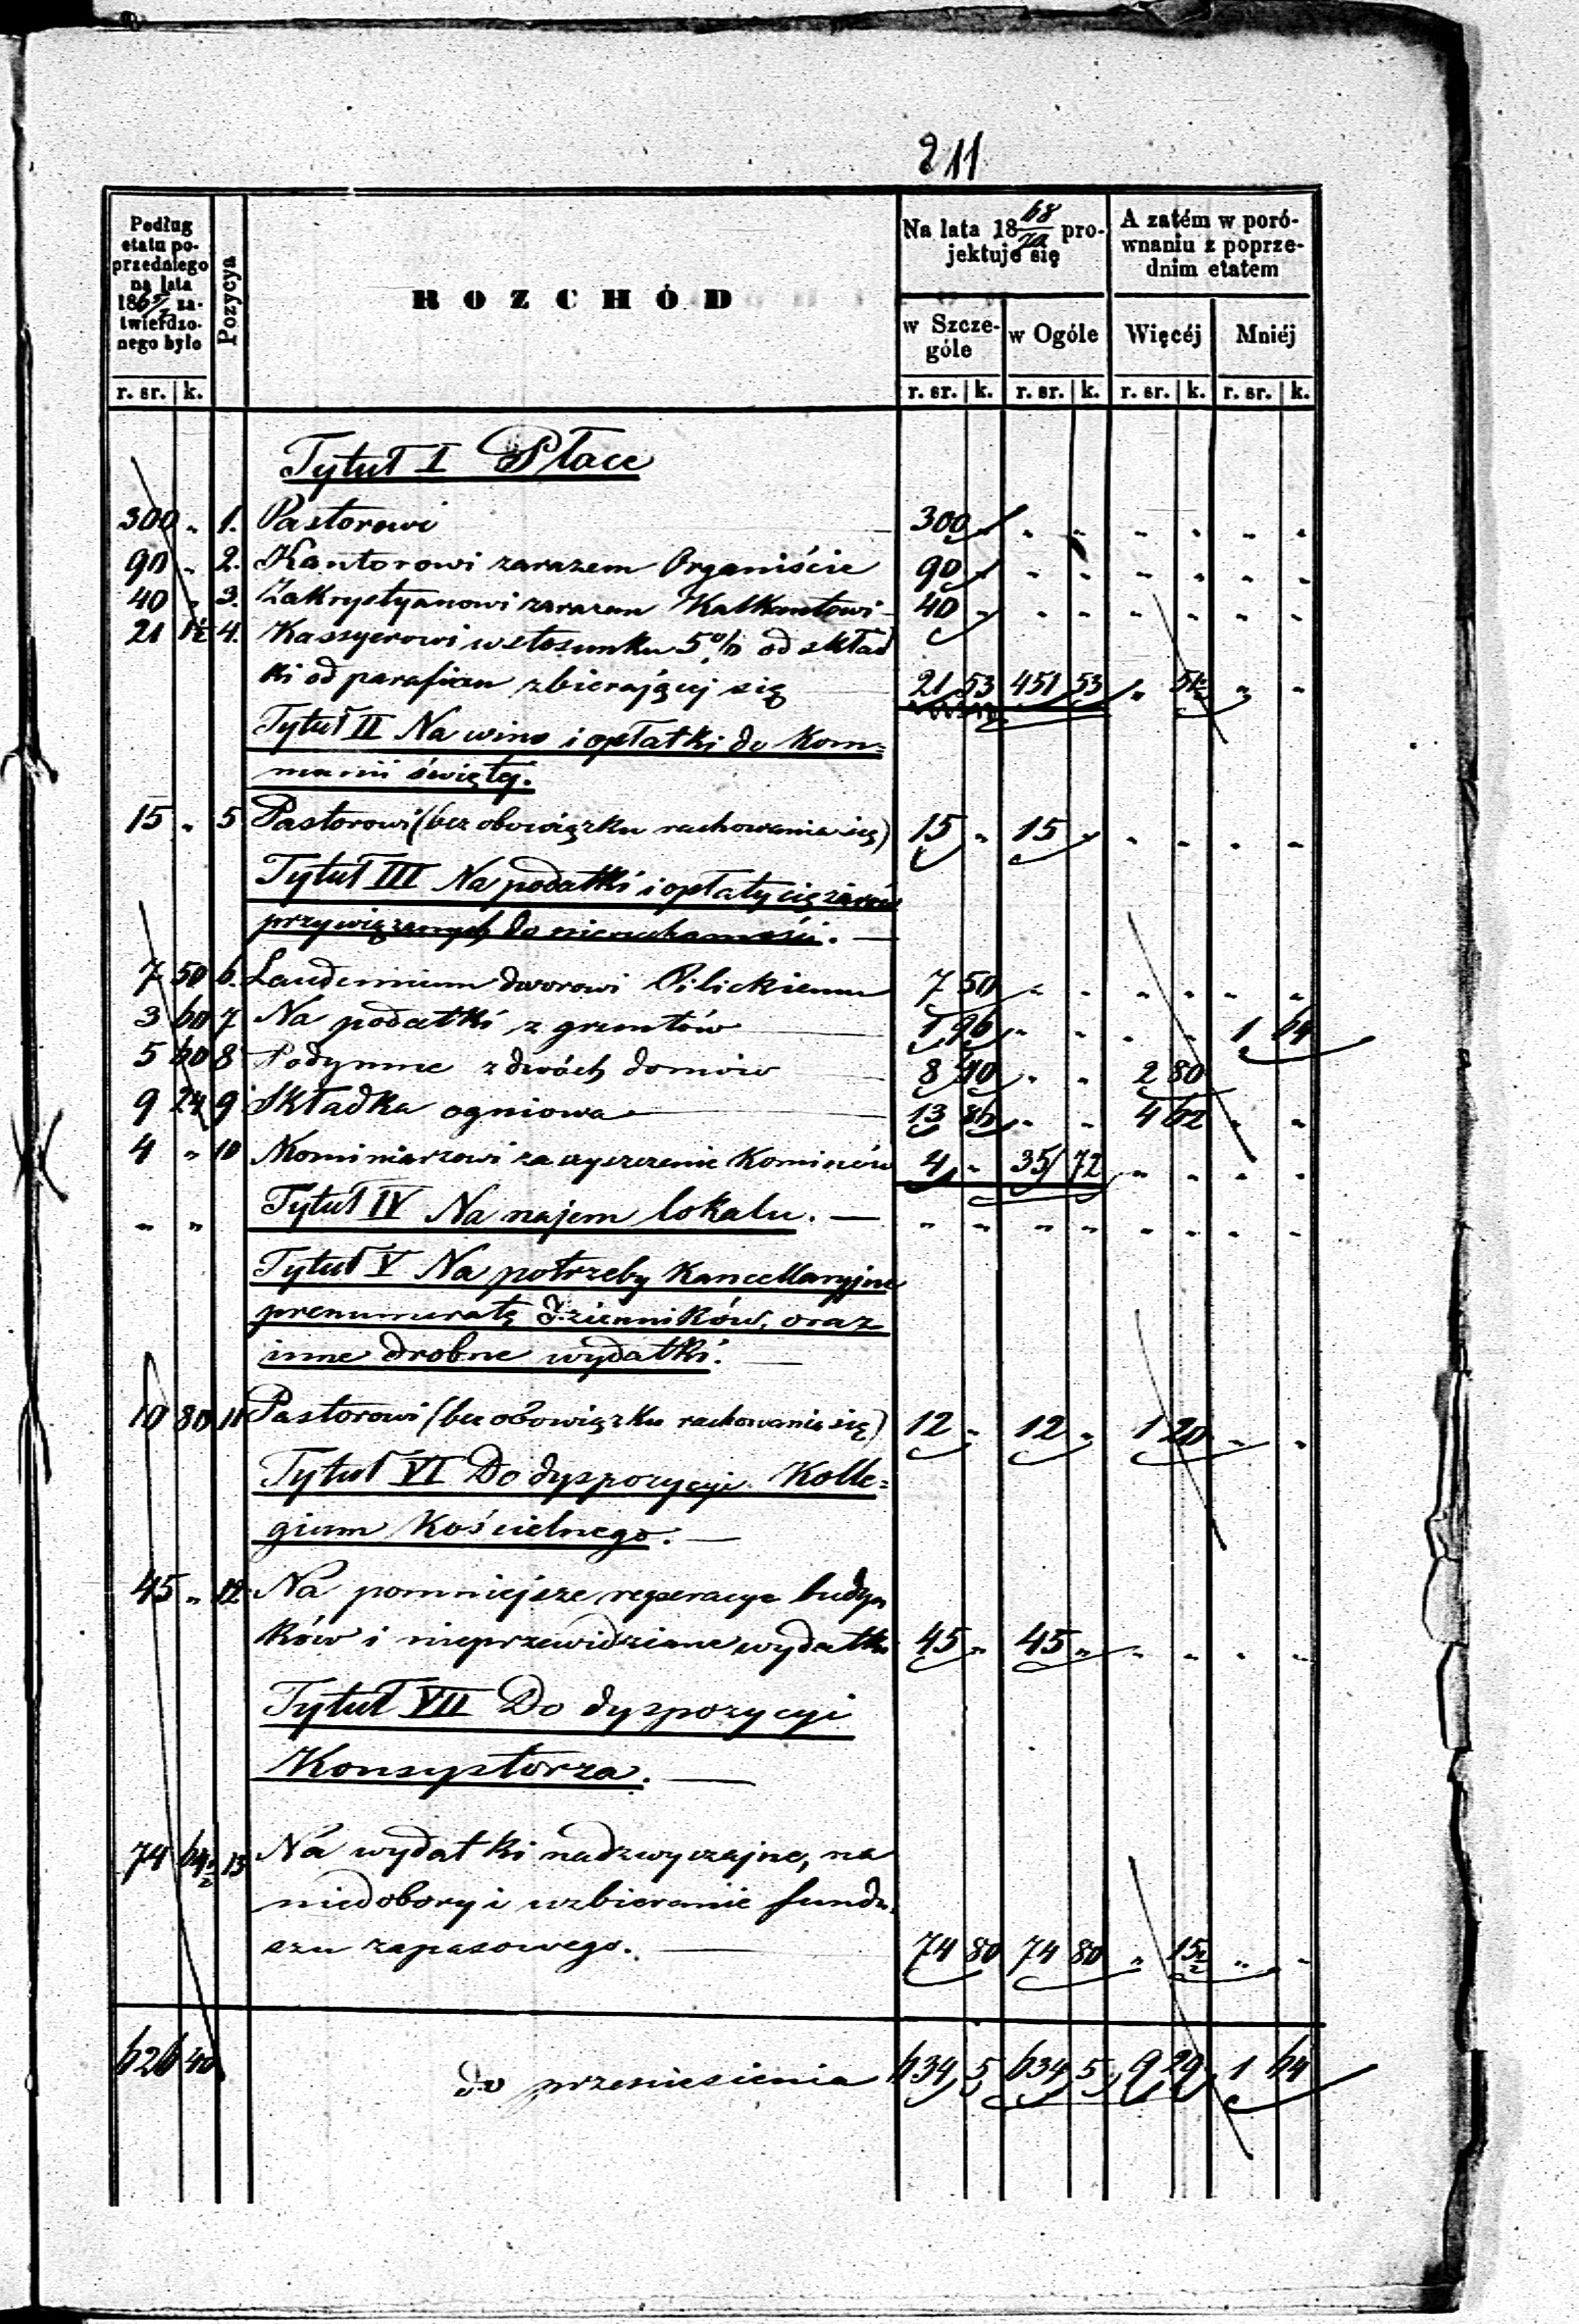 211
Podług etatu poprzedniego na lata 186 zatwierdzonego było
Pozycya
ROZCHÓD
Na lata 18 68/70 projektuje się
A zatém w porównaniu z poprzednim etatem
w Szczególe
w Ogóle
Więcéj
Mniéj
r. sr. k. r. sr. k. r. sr. k. r. sr. k. r. sr. k.
Tytuł I Płace
300 " 1. Pastorowi 300 " " " " " " "
90 " 2. Kantorowi zarazem Organiście 90 " " " " " " "
40 " 3. Zakrystyanowi zarazem Kalkantowi 40 " " " " " " "
21 1½ 4. Kassyerowi w stosunku 5% od skład
ki od parafian zbierającej się 21 53 451 53 " 51½ " "
Tytuł II Na wino i opłatki do Kom=
munii świętej.
15 " 5 Pastorowi (bez obowiązku rachowania się) 15 " 15 " " " " "
Tytuł III Na podatki i opłaty ciężarów
przywiązanych do nieruchomości. —
7 50 6. Laudemium dworowi Pilickiemu 7 50 " " " " " "
3 60 7 Na podatki z gruntów 1 96 " " " " 1 64
5 60 8 Podymne z dwóch domów 8 40 " " 2 80
9 24 9 Składka ogniowa 13 86 " " 4 62 " "
4 " 10 Kominiarzowi za czyszczenie Kominów 4 " 35 72 " " " "
" " Tytuł IV Na najem lokalu. — " " " " " " " "
Tytuł V Na potrzeby Kancellaryjne
prenumeratę Dzienników, oraz
inne drobne wydatki. —
10 80 11 Pastorowi (bez obowiązku rachowania się) 12 " 12 " 1 20 " "
Tytuł VI Do dyspozycyi Kolle=
gium Kościelnego. —
45 " 12 Na pomniejsze reperacye budyn
ków i nieprzewidziane wydatki 45 " 45 " " " " "
Tytuł VII Do dyspozycyi
Konsystorza. —
74 64½ 13 Na wydatki nadzwyczajne, na
niedobory i uzbieranie fundu
szu zapasowego. — 74 80 74 80 " 15½ " "
626 40 do przeniesienia 634 5 634 5 9 29 1 64